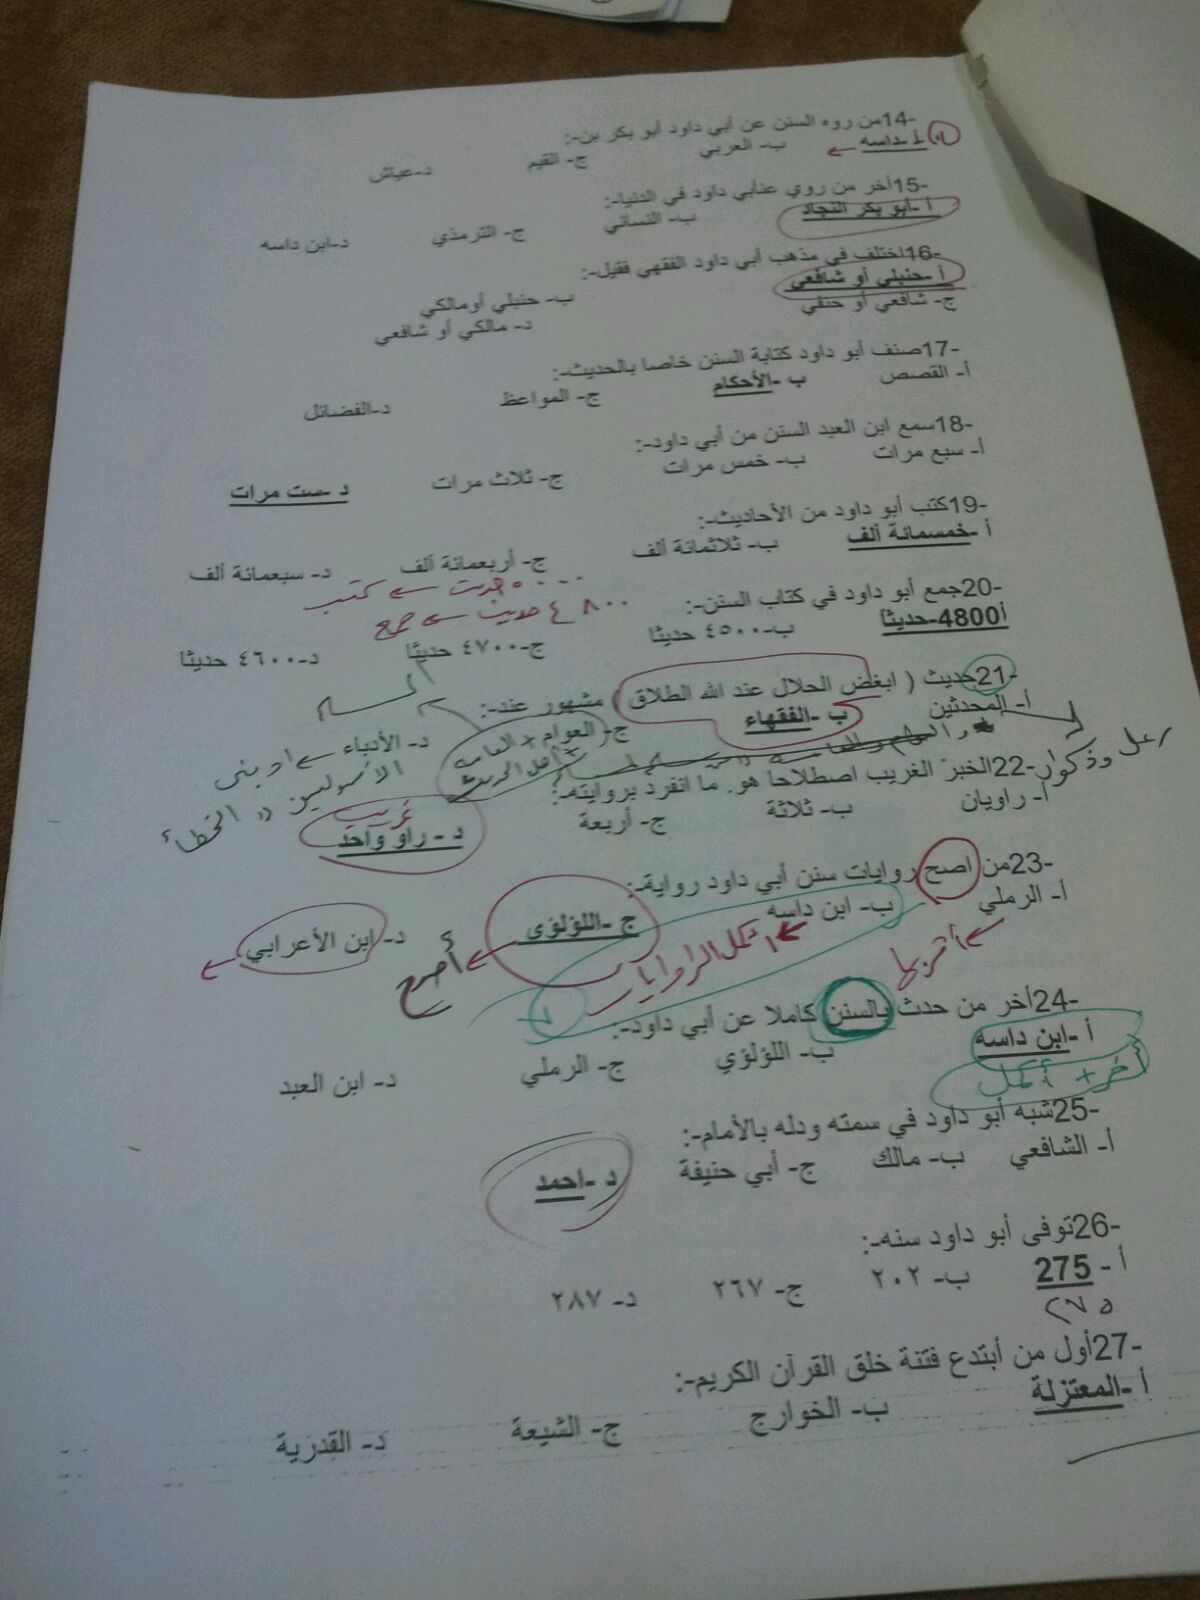 -14من روه السنن عن أبي داود أبو بكر بن:-
أ-داسه ب- العربي ج- القيم د-عياش
-15أخر من روي عنأبي داود في الدنيا:-
أ-أبو بكر النجاد ب- النسائي ج- الترمذي د-ابن داسه
-16اختلف في مذهب أبي داود الفقهي فقيل:-
أ-حنبلي أو شافعي ب- حنبلي أومالكي
ج- شافعي أو حنفي د- مالكي أو شافعي
-17صنف أبو داود كتابة السنن خاصا بالحديث:-
أ- القصص ب-الأحكام ج- المواعظ د-الفضائل
-18سمع ابن العبد السنن من أبي داود:-
أ- سبع مرات ب- خمس مرات ج- ثلاث مرات د-ست مرات
-19كتب أبو داود من الأحاديث:-
أ-خمسمائة ألف ب- ثلاثمائة ألف ج- أربعمائة ألف د- سبعمائة ألف
حديث ← كتب
٤٨٠٠ حديث ← جمع
-20جمع أبو داود في كتاب السنن:-
أ4800-حديثا ب-٤٥٠٠ حديثا ج-٤٧٠٠ حديثا د-٤٦٠٠ حديثا
-21حديث ( ابغض الحلال عند الله الطلاق ) مشهور عند:-
أ- المحدثين ب-الفقهاء ج- العوام + العامه د- الأدباء
رعل وذكوان
الأصوليين " الخطأ
-22الخبر الغريب اصطلاحا هو. ما انفرد بروايته:-
أ- راويان ب- ثلاثة ج- أربعة د- راو واحد
غريب
-23من اصح روايات سنن أبي داود رواية:-
أ- الرملي ب- ابن داسه ج-اللؤلؤي د- ابن الأعرابي
← أقربها ← اكمل الروايات ← أصح
-24أخر من حدث بالسنن كاملا عن أبي داود:-
أ-ابن داسه ب- اللؤلؤي ج- الرملي د- ابن العبد
أخر + أكمل
-25شبه أبو داود في سمته ودله بالأمام:-
أ- الشافعي ب- مالك ج- أبي حنيفة د-احمد
-26توفى أبو داود سنه:-
أ- 275 ب- ٢٠٢ ج- ٢٦٧ د- ٢٨٧
٢٧٥
-27أول من أبتدع فتنة خلق القرآن الكريم:-
أ-المعتزلة ب- الخوارج ج- الشيعة د- القدرية